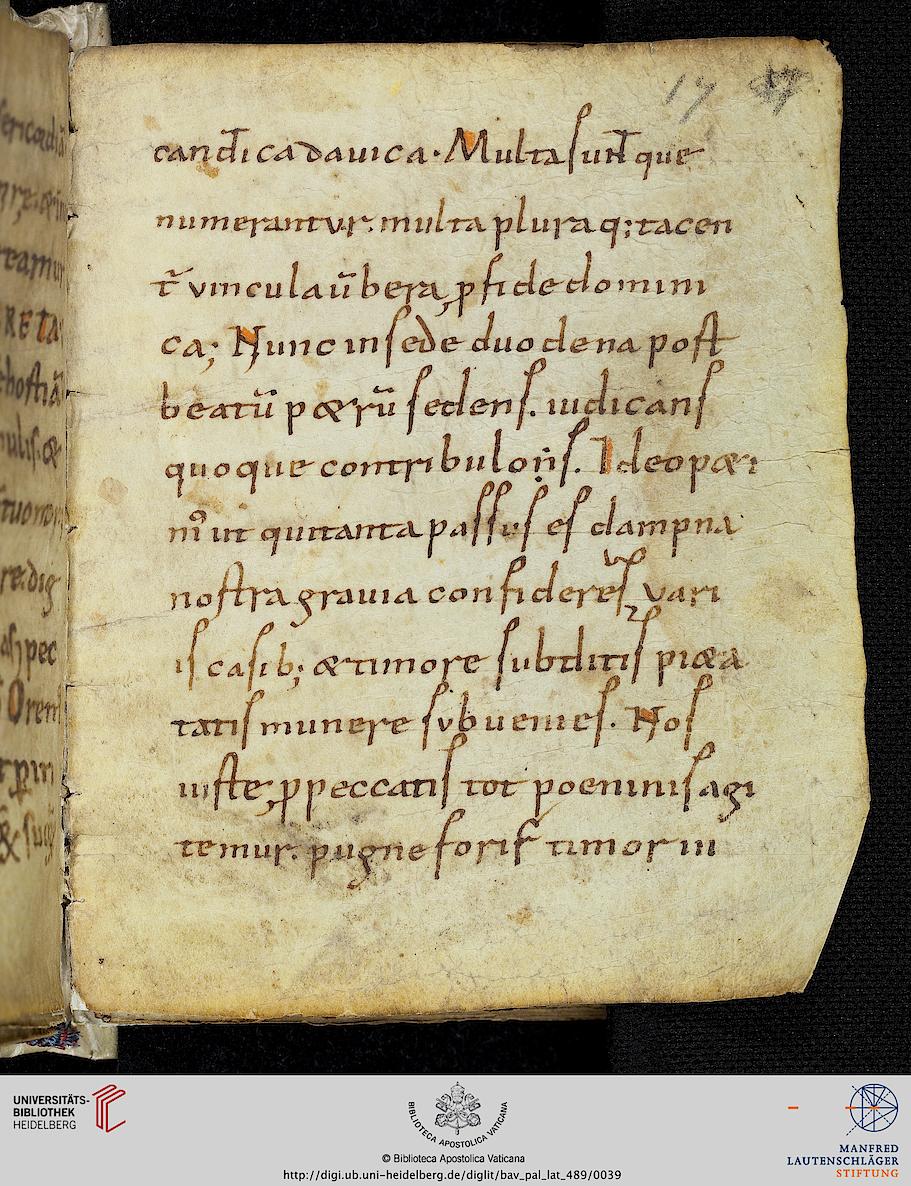 17 17
cand̄icadauica· Multa sun̄t que
numerantur. multa pluraq; tacen
t̄ vincula ūbera, ꝓ fide domini
ca; Nunc in sede duodena post
beatū pætrū sedens. iudicans
quoque contribulo
n̄s. Ideo pæti
mͦ ut qui tanta passus es dampna
nostra gravia consideres vari
is casib; æ timore subditis piæa
tatis munere subvenies. Nos
iuste, ꝓ peccatis tot poeninis agi
temur. pugne foris timor in
UNIVERSITÄTS-
BIBLIOTHEK
HEIDELBERG
BIBLIOTECA APOSTOLICA VATICANA
© Biblioteca Apostolica Vaticana
http://digi.ub.uni-heidelberg.de/diglit/bav_pal_lat_489/0039
MANFRED
LAUTENSCHLÄGER
STIFTUNG